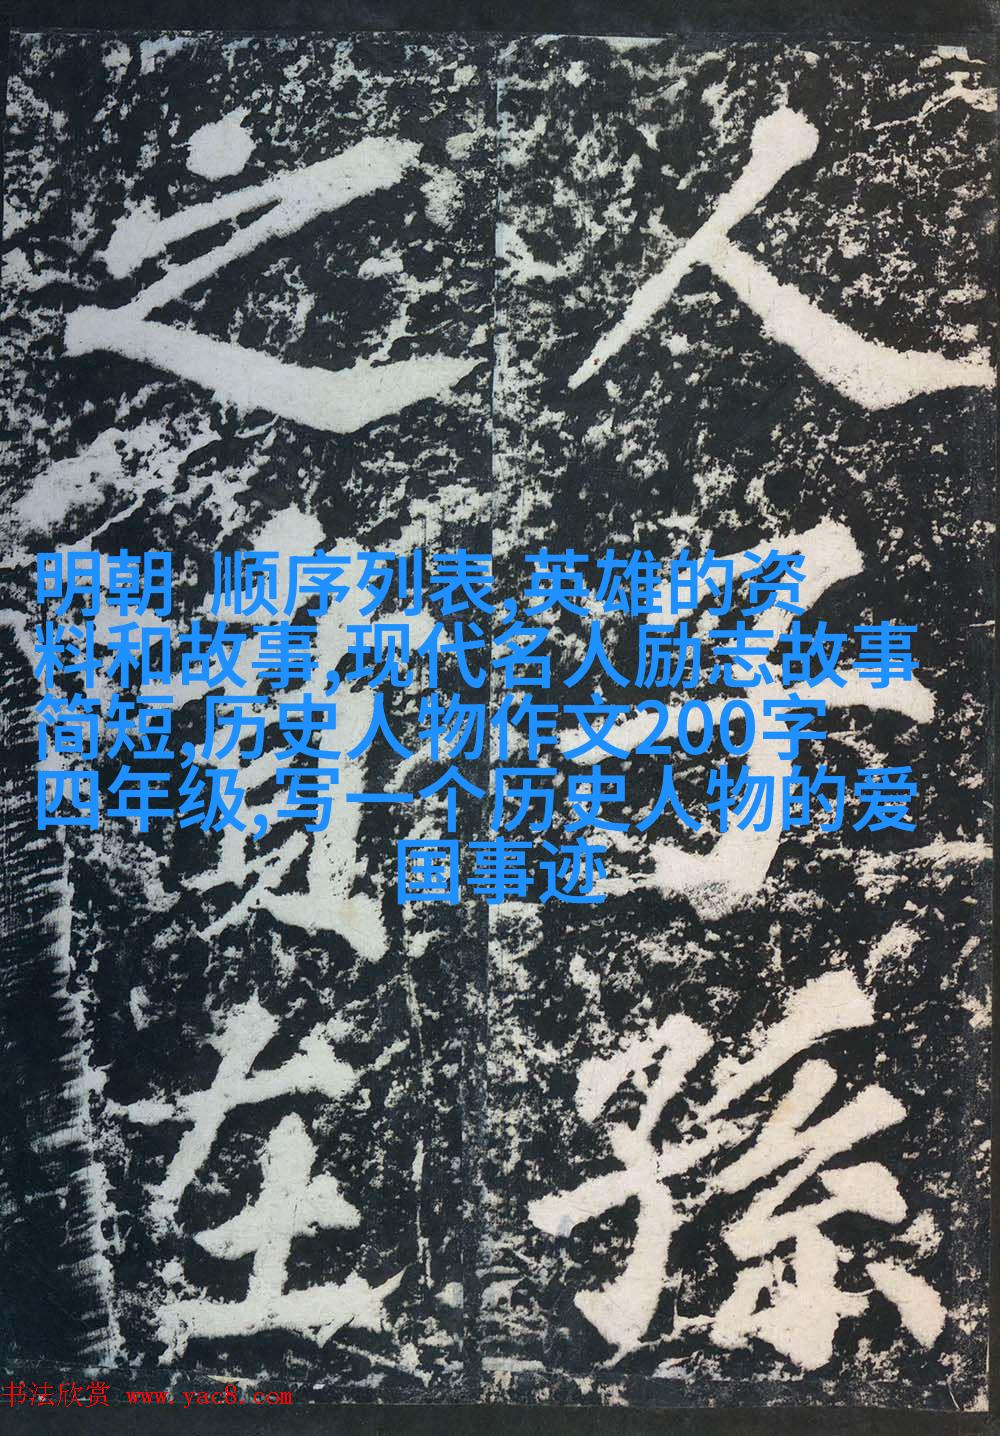 人子孫
之賢在
明朝 顺序列表,英雄的资
料和故事,现代名人励志故事
简短,历史人物作文200字
四年级,写一个历史人物的爱
国事迹
书法欣赏 www.yac8.com